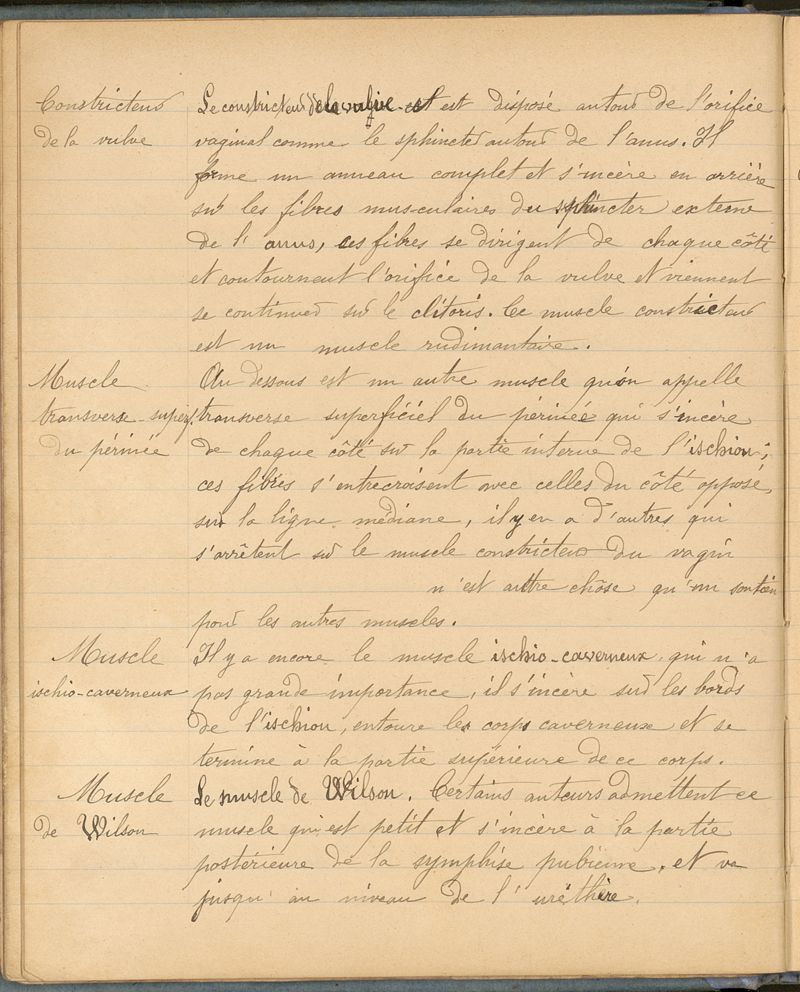 Constricteur
de la vulve
Le constricteur de la vulve est est disposé autour de l'orifice
vaginal comme le sphincter autour de l'anus. Il
forme un anneau complet et s'incère en arrière
sur les fibres musculaires du sphincter externe
de l'anus, ces fibres se dirigent de chaque côté
et contournent l'orifice de la vulve et viennent
se continuer sur le clitoris. Ce muscle constricteur
est un muscle rudimantaire.
Muscle
transverse superf.
du périnée
Au dessous est un autre muscle qu'on appelle
transverse superficiel du périnée qui s'incère
de chaque côté sur la partie interne de l'ischion;
ces fibres s'entrecroisent avec celles du côté opposé,
sur la ligne médiane, il y en a d'autres qui
s'arrêtent sur le muscle constricteur du vagin
n'est autre chose qu'un soutien
pour les autres muscles.
Muscle
ischio-caverneux
Il y a encore le muscle ischio-caverneux qui n'a
pas grande importance, il s'incère sur les bords
de l'ischion, entoure les corps caverneux et se
termine à la partie supérieure de ce corps.
Muscle
de Wilson
Le muscle de Wilson. Certains auteurs admettent ce
muscle qui est petit et s'incère à la partie
postérieure de la symphise pubienne, et va
jusqu'au niveau de l'uréthère.